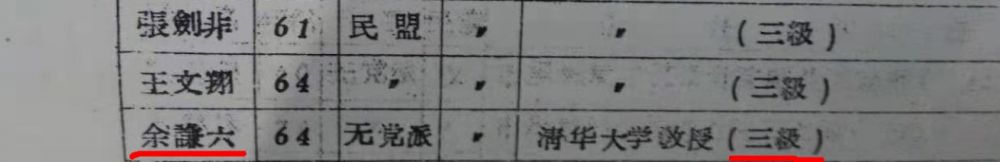 張劍非 61 民盟 〃 〃 (三級)
王文翔 64 〃 〃 〃 (三級)
余謙六 64 无党派 〃 清华大学教授 (三級)